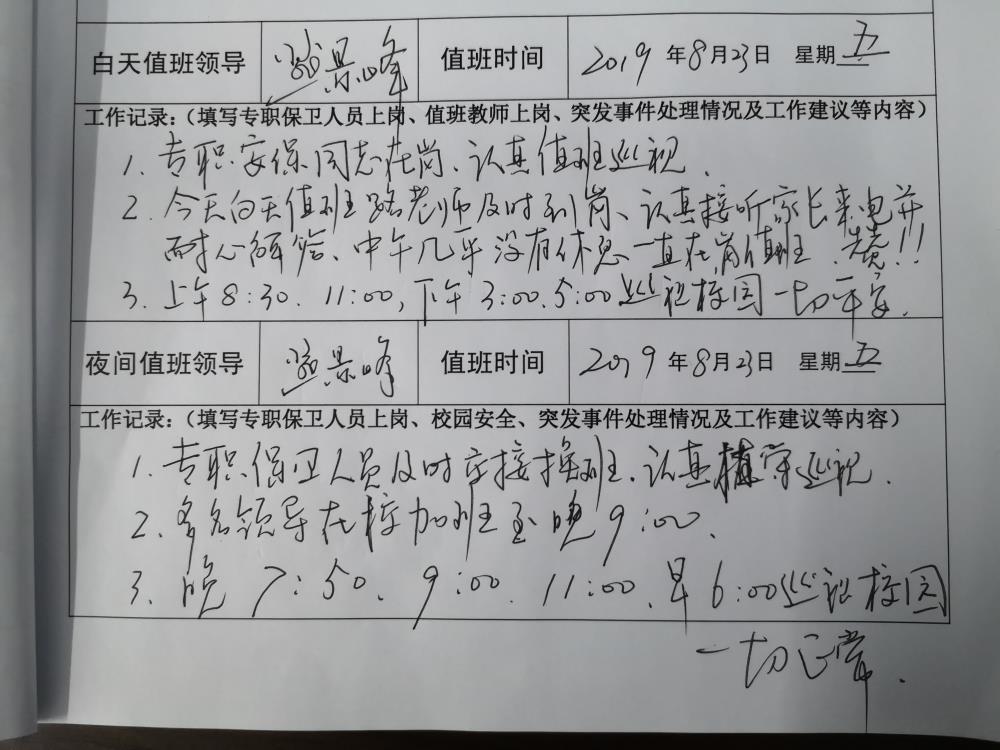 白天值班领导 景峰 值班时间 2019年8月23日 星期五
工作记录：（填写专职保卫人员上岗、值班教师上岗、突发事件处理情况及工作建议等内容）
1、专职安保同志在岗、认真值班巡视.
2、今天白天值班路老师及时到岗、认真接听家长来电并
耐心解答、中午几乎没有休息一直在岗值班.赞!!
3、上午8:30、11:00,下午3:00、5:00巡视校园一切平安.
夜间值班领导 景峰 值班时间 2019年8月23日 星期五
工作记录：（填写专职保卫人员上岗、校园安全、突发事件处理情况及工作建议等内容）
1、专职保卫人员及时交接换班、认真值守巡视.
2、多名领导在校加班至晚9:00.
3、晚7:50、9:00、11:00、早6:00巡视校园
一切正常.